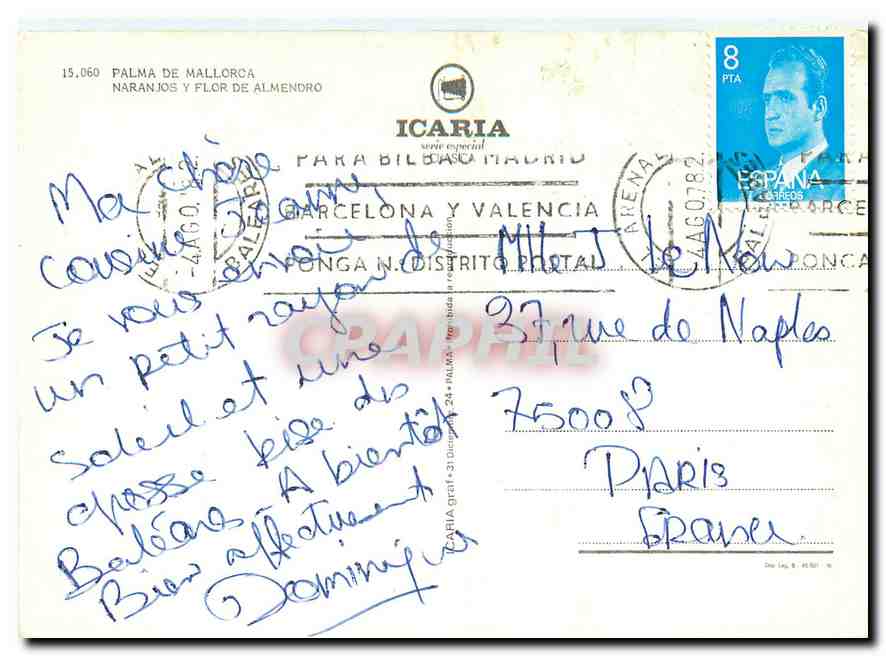 15.060 PALMA DE MALLORCA
NARANJOS Y FLOR DE ALMENDRO
ICARIA
serie especial
CLASICA
8
PTA
ESPAÑA
CORREOS
PARA BILBAO MADRID
BARCELONA Y VALENCIA
PONGA N.º DISTRITO POSTAL
ARENAL
-4 AGO 82
BALEARES
PARA
BARCE
PONCA
Ma chère
Cousine Jeanne
Je vous envoie
un petit rayon de
Soleil et une
grosse bise des
Baléares. A bientôt
Bien affectueusement
Dominique
Mlle J Le
37, rue de Naples
75008
PARIS
France
ICARIA graf • 31 Diciembre, 24 • PALMA • Prohibida la reproducción
Dep. Leg. B.
CRAPHIL